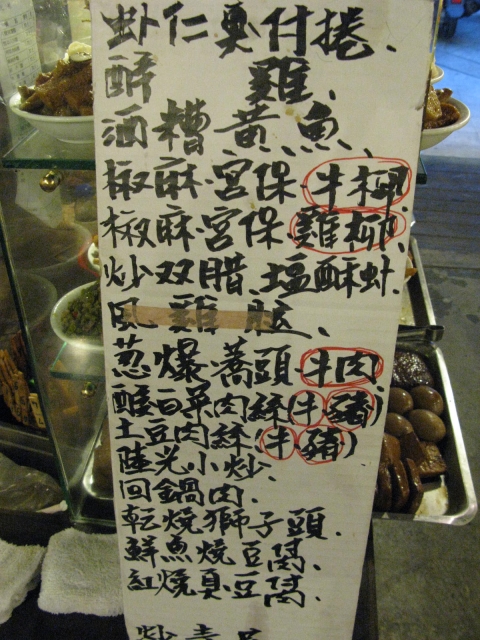 虾仁臭付捲、
醉雞、
酒糟黃魚、
椒麻.宮保.牛柳
椒麻.宮保.雞柳、
炒双腊、塩酥虾.
風雞腿、
葱爆蕎頭牛肉
醃白菜肉絲(牛.豬)
土豆肉絲(牛.豬)
陸光小炒.
回鍋肉.
乾燒獅子頭.
鮮魚燒豆腐、
紅燒臭豆腐、
炒青